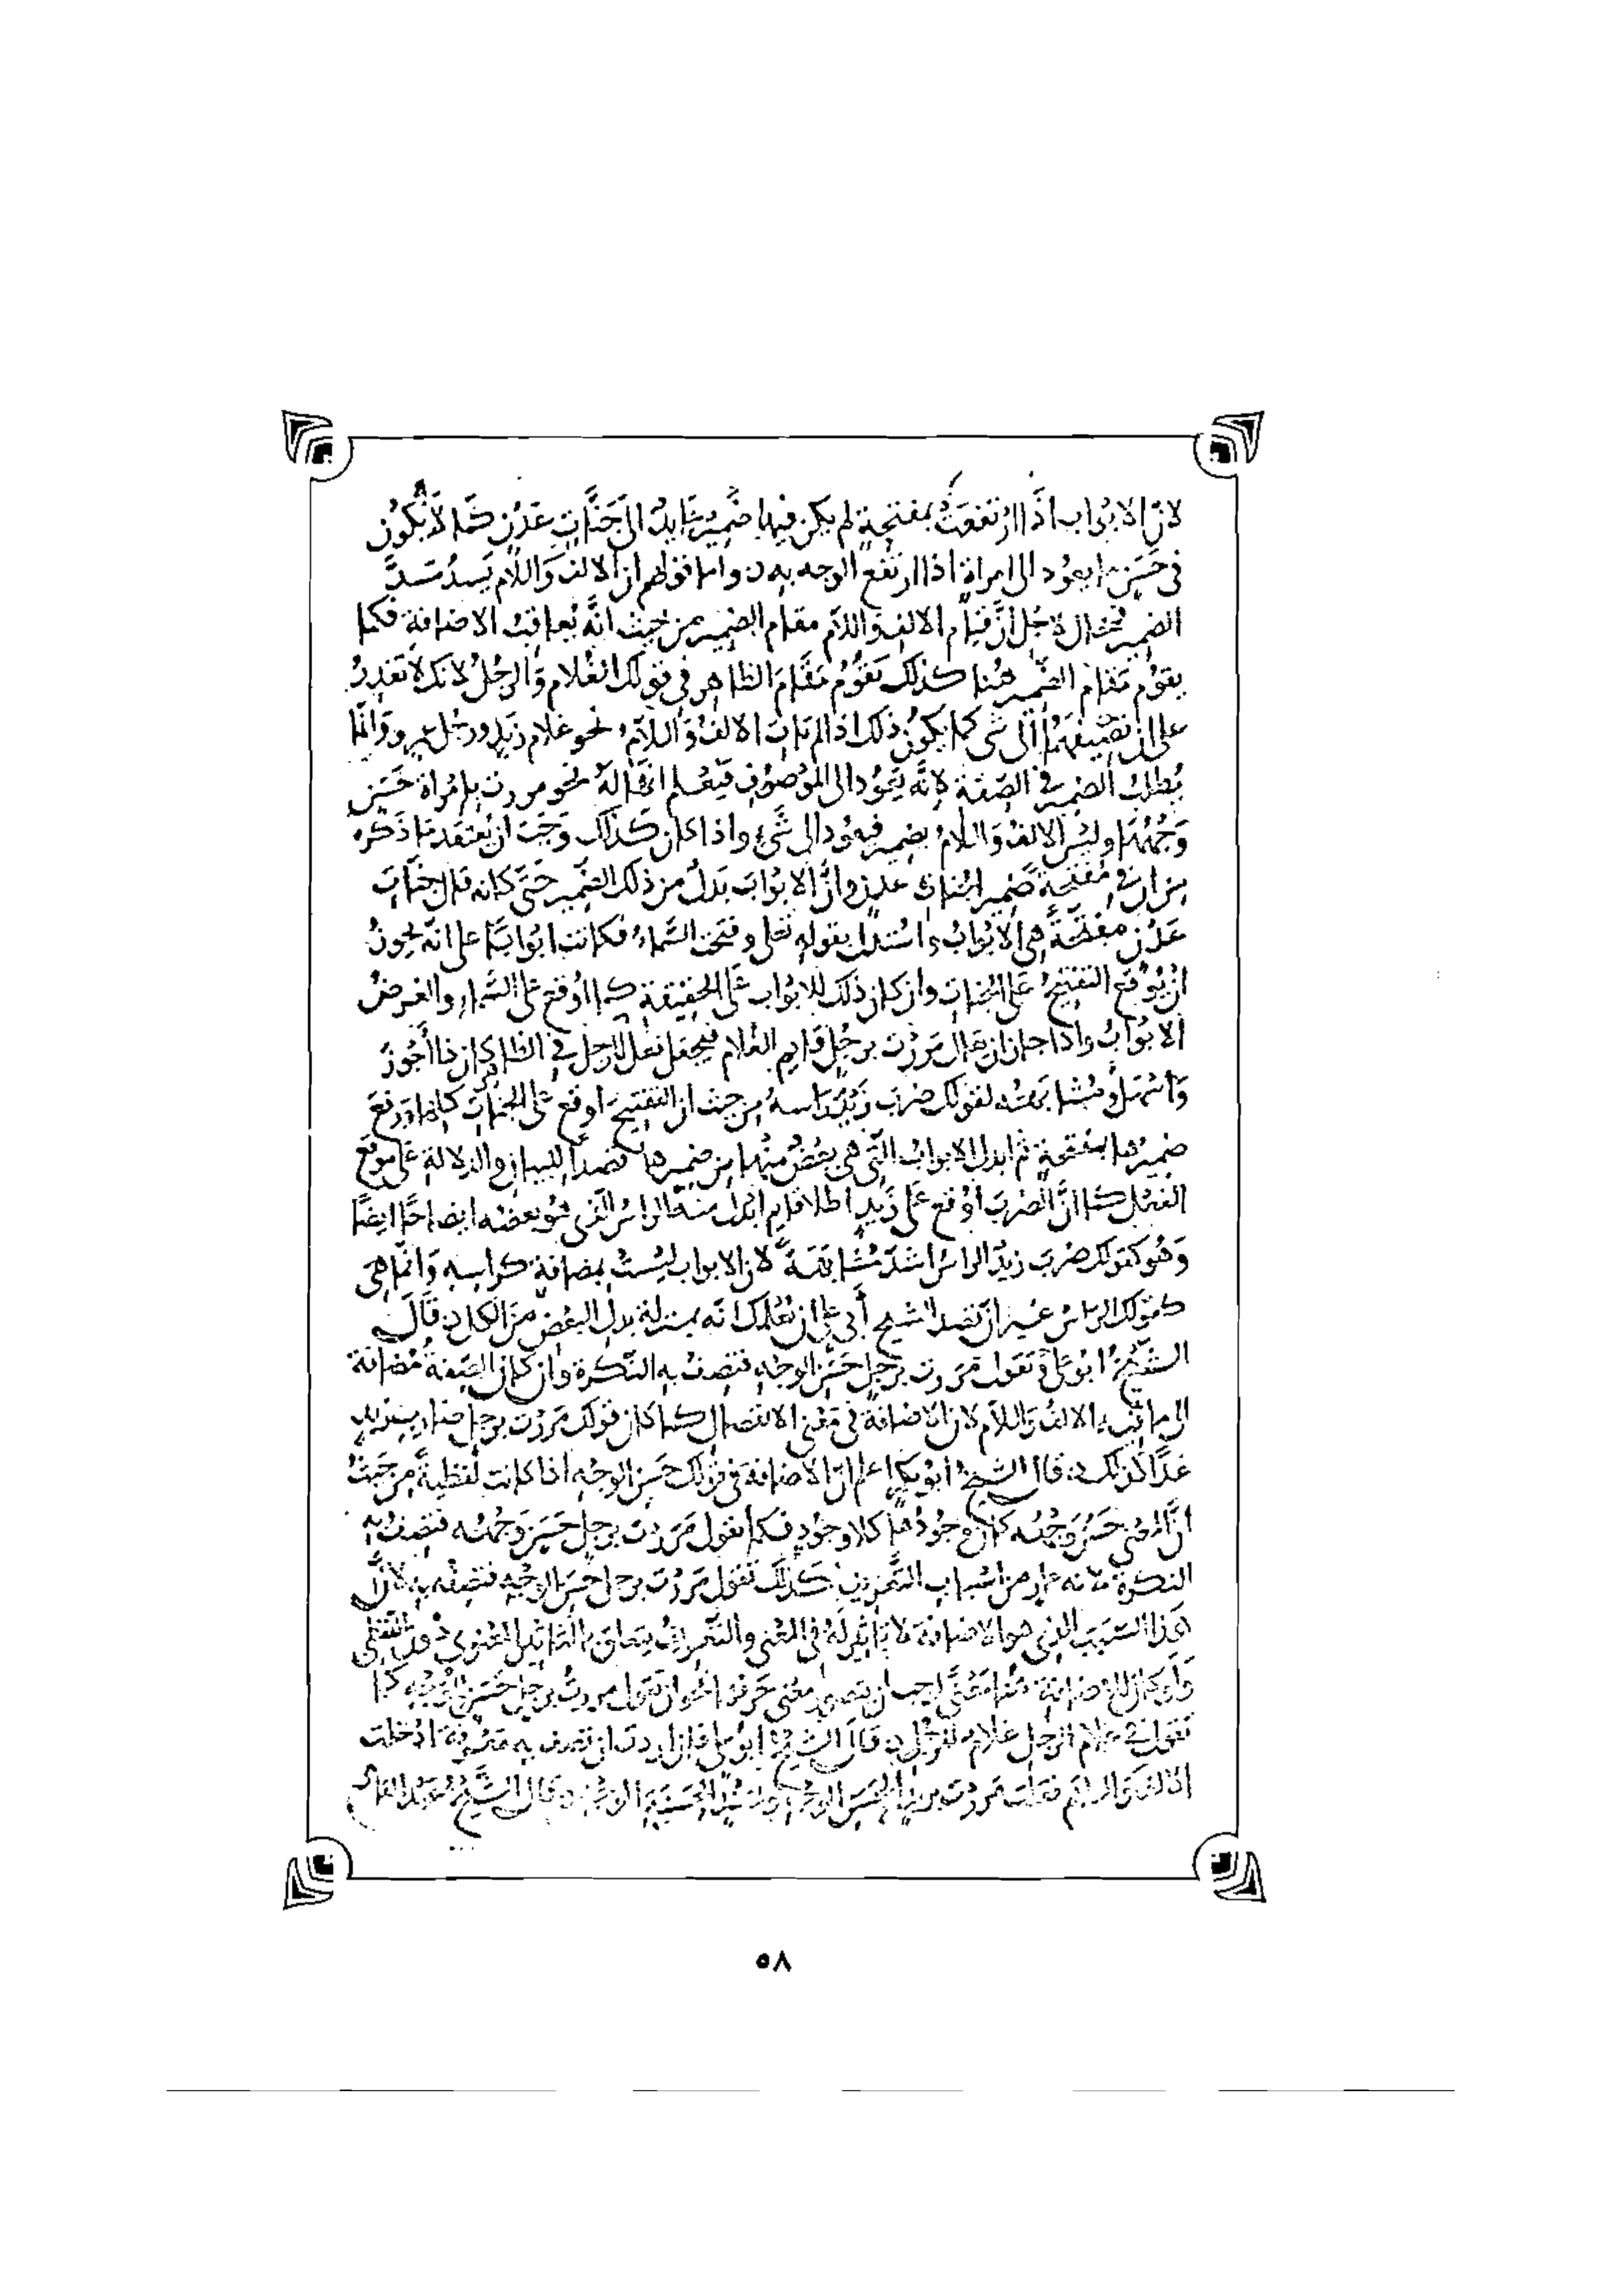 لان الابواب اذا ارتفعت بمفتحة لم يكن فيها ضمير عايد الى جنات عدن كما لا يكون
في حسن ما يعود الى امراة اذا ارتفع الوجه به ن واما قولهم ان الالف واللام يسد مسد
الضمير فمحال لاجل ان قيام الالف واللام مقام الضمير من حيث انه يعاقب الاضافة فكما
يقوم مقام الضمير هنا كذلك يقوم مقام الظاهر في قولك الغلام والرجل لانك لا تقدر
على ان تضيفهما الى شى كما يكون ذلك اذا لم تات الالف واللام نحو غلام زيد ورجل عمرو وانما
يطلب الضمير في الصفة لانه يعود الى الموصوف فيعلم انها له نحو مررت بامراة حسن
وجهها وليس الالف واللام بضمير فيعود الى شىء واذا كان كذلك وجب ان يعتقد ما ذكره
من ان في مفتحة ضمير الجنات عدن وان الابواب بدل من ذلك الضمير حتى كانه قال جنات
عدن مفتحة هي الابواب واستدل بقوله تعلى وفتحت السماء فكانت ابوابا على انه يجوز
ان يوقع التفتيح على الجنات وان كان ذلك للابواب على الحقيقة كما اوقع على السماء والغرض
الابواب واذا جاز ان يقال مررت برجل قايم الغلام فيجعل فعل الرجل في الظاهر كان ذا اجوز
واسهل ومشابهته لقولك ضرب زيد راسه من حيث ان التفتيح اوقع على الجنات كلها ورفع
ضميرها بمفتحة ثم ابدل الابواب التي هي بعض منها من ضميرها قصدا للبيان والدلالة على موقع
الفعل كما ان الضرب اوقع على زيد اطلاقا ثم ابدل منه الراس الذي هو بعضه ايضاحا ايضا
وهو كقولك ضرب زيد الراس اشد مشابهة لان الابواب ليست بمضافة كراسه وانما هي
كقولك الراس غير ان قصد الشيخ أبي على ان يعلمك انه بمنزلة بدل البعض من الكل ن قال
الشيخ ابو على وتقول مررت برجل حسن الوجه فتصف به النكرة وان كان الصفة مضافة
الى ما فيه الالف واللام لان الاضافة في معنى الانفصال كما كان قولك مررت برجل ضارب زيد
غدا كذلك ن قال الشيخ ابو بكر اعلم ان الاضافة في قولك حسن الوجه اذا كانت لفظية من حيث
ان المعنى حسن وجهه كان وجودها كلا وجود فكما تقول مررت برجل حسن وجهه فتصف به
النكرة لانه عار من اسباب التعريف كذلك تقول مررت برجل حسن الوجه فتصفه به لان
هذا السبب الذي هو الاضافة لا تاثير له في المعنى والتعريف يتعلق بالتاثير المعنوي دون اللفظي
ولو كان للاضافة هنا معنى لوجب ان يتصور معنى حرف نحو ان تقول مررت برجل حسن الوجه كما
تقول في غلام الرجل غلام للرجل ن قال الشيخ ابو على فان اردت ان تصف به معرفة ادخلت
الالف واللام فقلت مررت بزيد الحسن الوجه وبهند الحسنة الوجه ن قال الشيخ عبد القاهر
٥٨